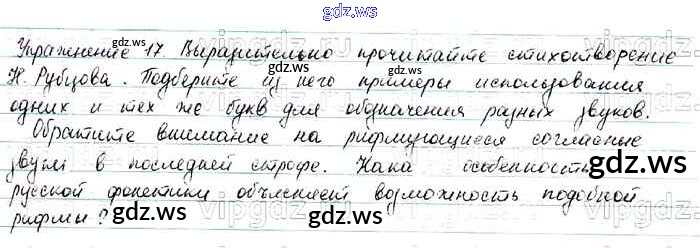 gdz.ws
Упражнение 17. Выразительно прочитайте стихотворение
gdz.ws gdz.ws
Н. Рубцова. Подберите из него примеры использования
gdz.ws
одних и тех же букв для обозначения разных звуков.
Обратите внимание на рифмующиеся согласные
звуки в последней строфе. Кака особенность
gdz.ws
русской фонетики объясняет возможность подобной
gdz.ws gdz.ws
рифмы?